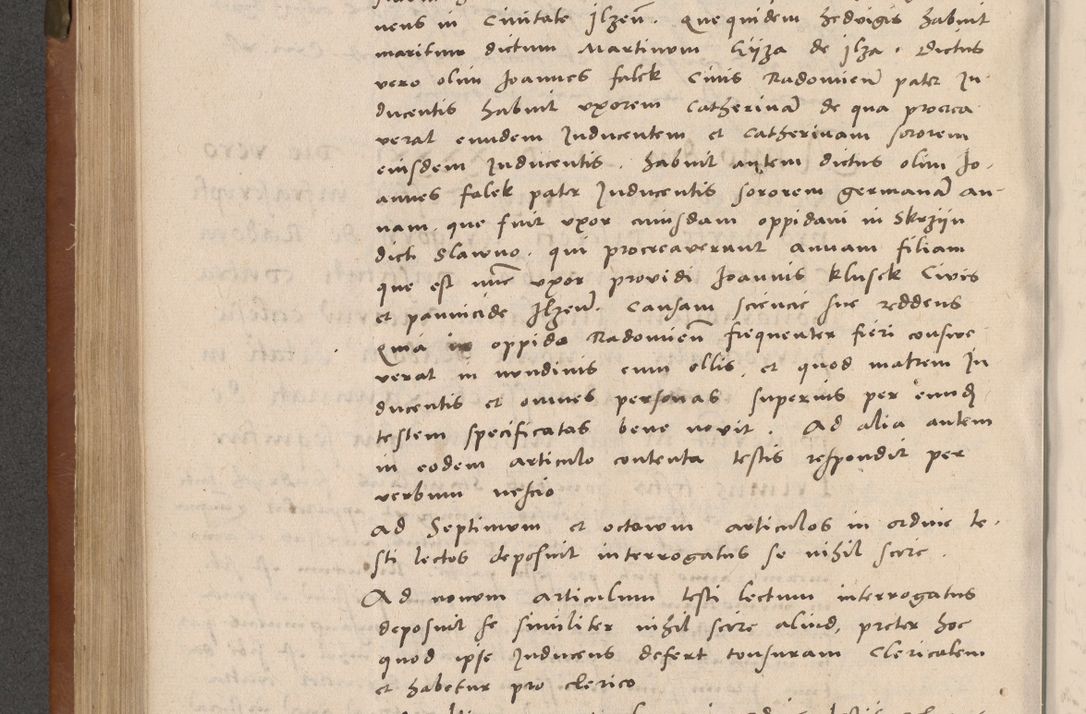 nens in Civitate Ilzen̄. Que quidem hedvigis habuit
maritum dictum Martinum Gyza de Ilza. Dictus
vero olim Joannes falek Civis Radomien̄ pater In-
ducentis habuit uxorem Catherinā de qua procrea
verat eundem Inducentem et Catherinam sororem
eiusdem Inducentis. habuit autem dictus olim Jo-
annes falek pater Inducentis sororem germanā an-
nam, que fuit uxor cuiusdam oppidani in Skrzijn
dicti Slawno. qui procreaverunt Annam filiam
que est nūc uxor providi Joannis klusek Civis
et pannicide Ilzen̄. Causam sciencie sue reddens
Quia in oppido Radomien̄ frequenter fieri consue
verat in nundinis cum ollis, et quod matrem In
ducentis et omnes personas superius per eundē
testem specificatas bene novit. Ad alia autem
in eodem articulo contenta testis respondit per
verbum nescio
Ad Septimum et octavum articulos in ordine te-
sti lectos deposuit interrogatus se nihil scire.
Ad nonum articulum testi lectum interrogatus
deposuit se similiter nihil scire aliud, preter hoc
quod ipse Inducens defert tonsuram Clericalem
et habetur pro clerico